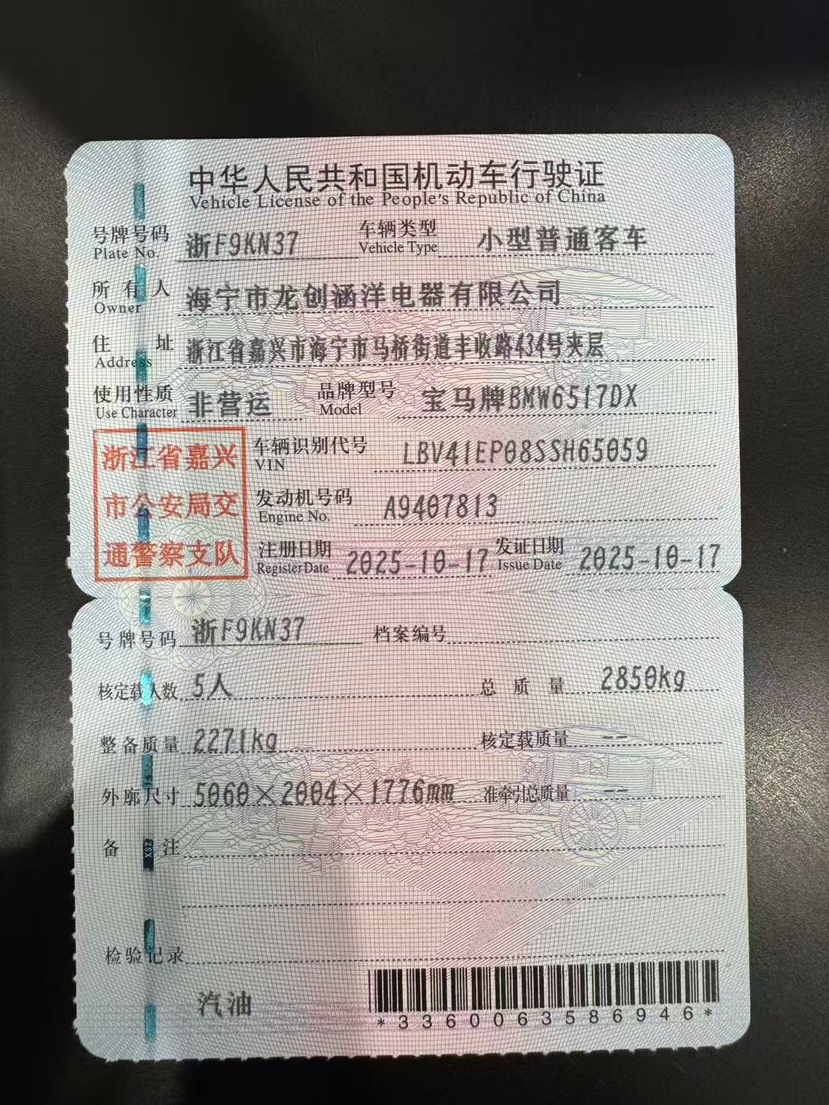 中华人民共和国机动车行驶证
Vehicle License of the People's Republic of China
号牌号码 Plate No. 浙F9KN37 车辆类型 Vehicle Type 小型普通客车
所有人 Owner 海宁市龙创涵洋电器有限公司
住址 Address 浙江省嘉兴市海宁市马桥街道丰收路434号夹层
使用性质 Use Character 非营运 品牌型号 Model 宝马牌BMW6517DX
浙江省嘉兴
市公安局交
通警察支队
车辆识别代号 VIN LBV41EP08SSH65059
发动机号码 Engine No. A9407813
注册日期 Register Date 2025-10-17 发证日期 Issue Date 2025-10-17
号牌号码 浙F9KN37 档案编号
核定载人数 5人 总质量 2850kg
整备质量 2271kg 核定载质量 --
外廓尺寸 5060×2004×1776mm 准牵引总质量 --
备注
检验记录
汽油
*3360063586946*